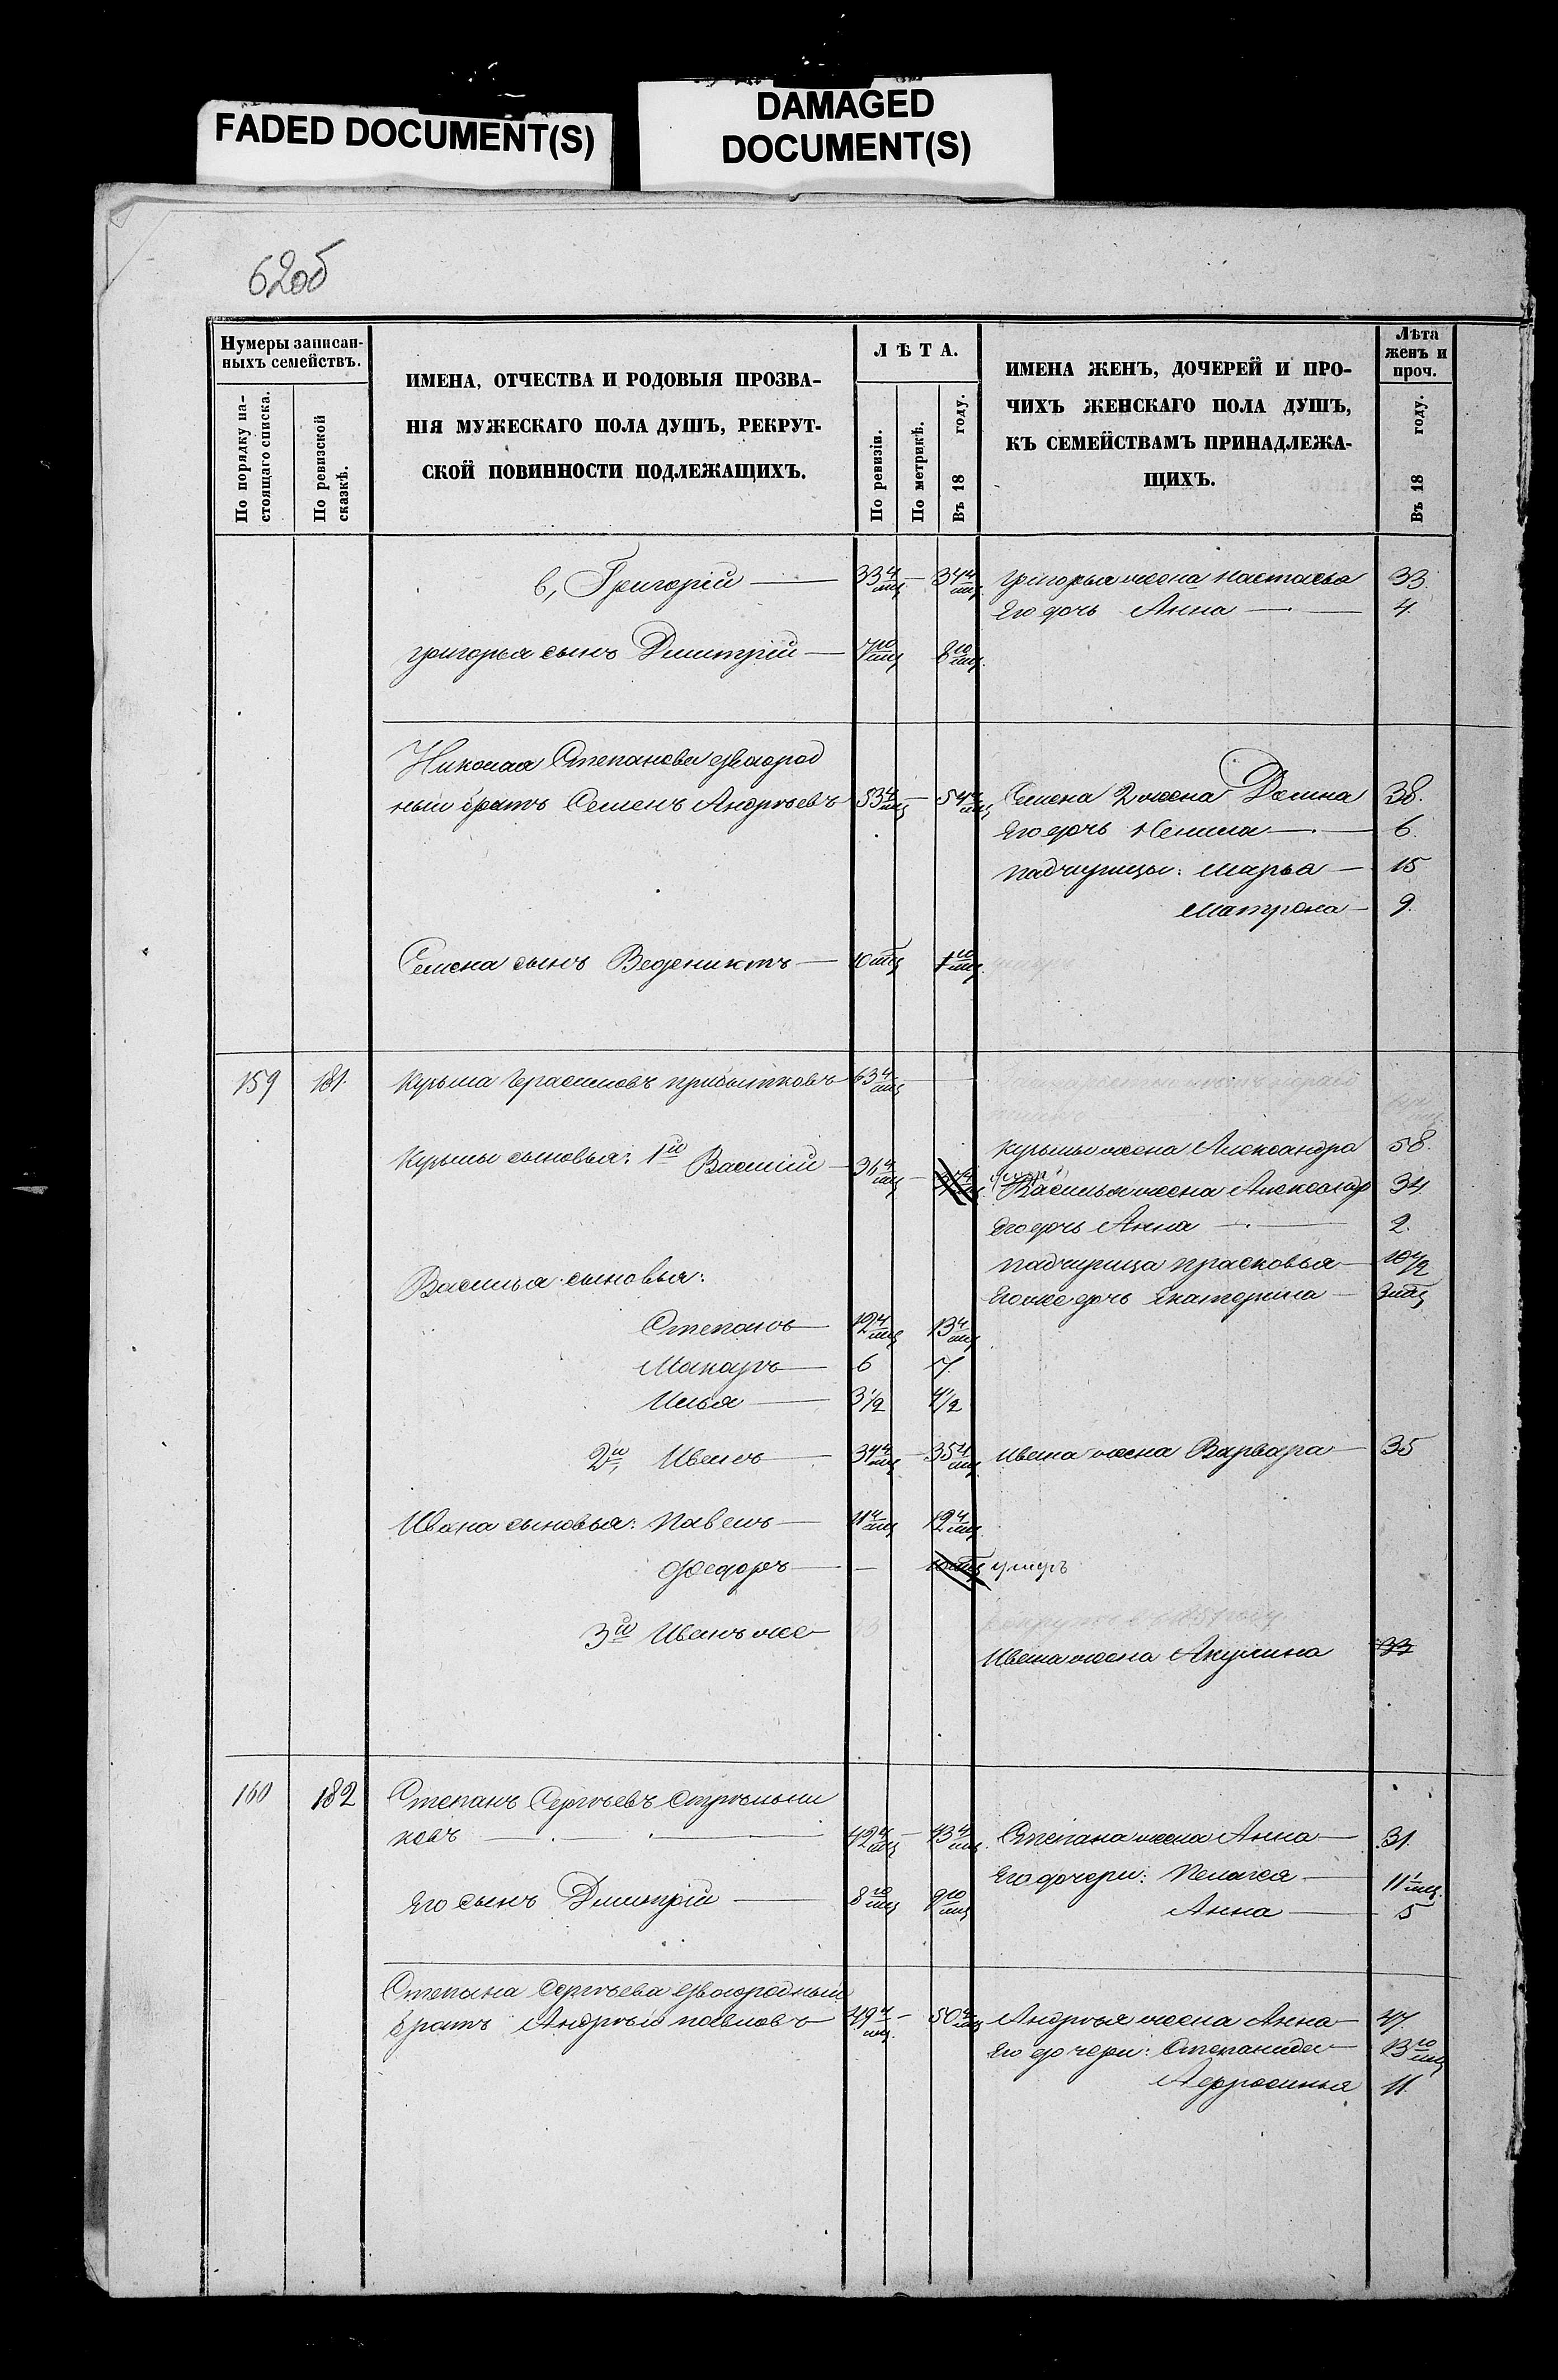 FADED DOCUMENT(S)
DAMAGED
DOCUMENT(S)
62об
Нумеры записан-
ныхъ семействъ.
По порядку на-
стоящаго списка.
По ревизской
сказкѣ.
ИМЕНА, ОТЧЕСТВА И РОДОВЫЯ ПРОЗВА-
НІЯ МУЖЕСКАГО ПОЛА ДУШЪ, РЕКРУТ-
СКОЙ ПОВИННОСТИ ПОДЛЕЖАЩИХЪ.
ЛѢТА.
По ревизіи.
По метрикѣ.
Въ 18 году.
ИМЕНА ЖЕНЪ, ДОЧЕРЕЙ И ПРО-
ЧИХЪ ЖЕНСКАГО ПОЛА ДУШЪ,
КЪ СЕМЕЙСТВАМЪ ПРИНАДЛЕЖА-
ЩИХЪ.
Лѣта
женъ и
проч.
Въ 18 году.
в, Григорій — 33 4/мц — 34 4/мц Григорья жена Настасья 33.
Его дочь Анна — 4.
Григорья сынъ Дмитрій — 7 10/мц 8 10/мц.
Николая Степанова двоюрод
ный братъ Семенъ Андреевъ 53 4/мц — 54 4/мц Семена 2 жена Домна 38.
Его дочь — 6.
падчерицы: Марья — 15
Матрена — 9.
Семена сынъ Веденикть — 10 мц 1 10/мц.
159 181. Курьма Герасимовъ Прибытковъ 63 4/мц
Курьмы жена Александра 58.
Курьмы сыновья: 1й Василій — 36 4/мц — 37 4/мц Василья жена Александр 34.
Его дочь Анна — 2.
падчерица Прасковья — 10 1/2
Василья сыновья:
Его же дочь Екатерина — 3 мц
Степанъ — 12 4/мц 13 4/мц
Макаръ — 6 7.
Илья — 3 1/2 4 1/2
2й, Иванъ — 34 4/мц — 35 4/мц Ивана жена Варвара — 35
Ивана сыновья: Павелъ — 11 4/мц 12 4/мц.
Федоръ — — 10 мц умеръ
3й Иванъ же
Ивана жена Акулина 33
160 182 Степанъ Сергѣевъ Стрѣльни
ковъ — 42 4/мц — 43 4/мц. Степана жена Анна — 31.
Его дочери: Пелагея — 11 1/мц.
Его сынъ Дмитрій — 8 10/мц 9 10/мц
Анна — 5
Степана Сергѣева двоюродный
братъ Андрѣй Павловъ 49 4/мц. — 50 4/мц Андрѣя жена Анна — 47.
Его дочери: Степанида — 13 10/мц
Афросинья 11.